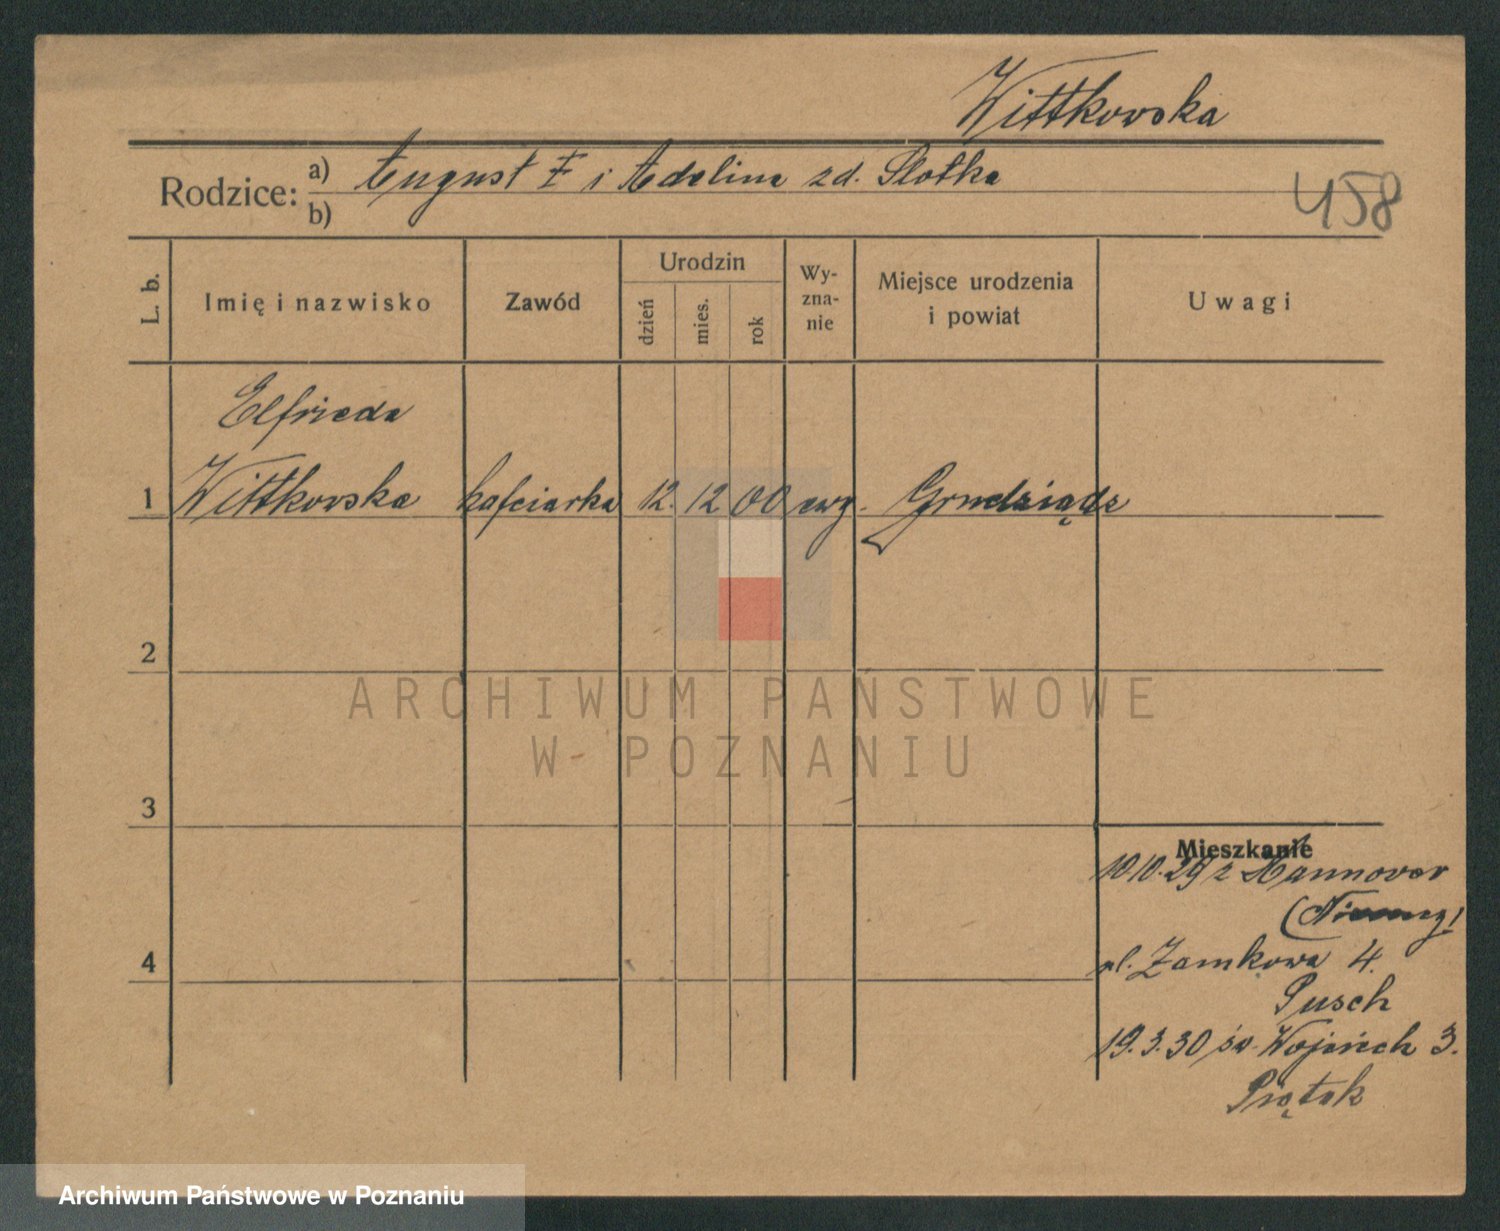 Wittkowska
Rodzice: a) August ‡ i Adelina zd. Slotka
b)
458
L. b. Imię i nazwisko Zawód Urodzin dzień mies. rok Wy-zna-nie Miejsce urodzenia i powiat Uwagi
Elfrieda
1 Wittkowska hafciarka 12. 12 00 ewg. Grudziądz
2
3
4
Mieszkanie
10.10.29 z Hannover
(Niemcy)
ul. Zamkowa 4.
Pusch
19.3.30 św. Wojciech 3.
Piątek
ARCHIWUM PAŃSTWOWE
W POZNANIU
Archiwum Państwowe w Poznaniu